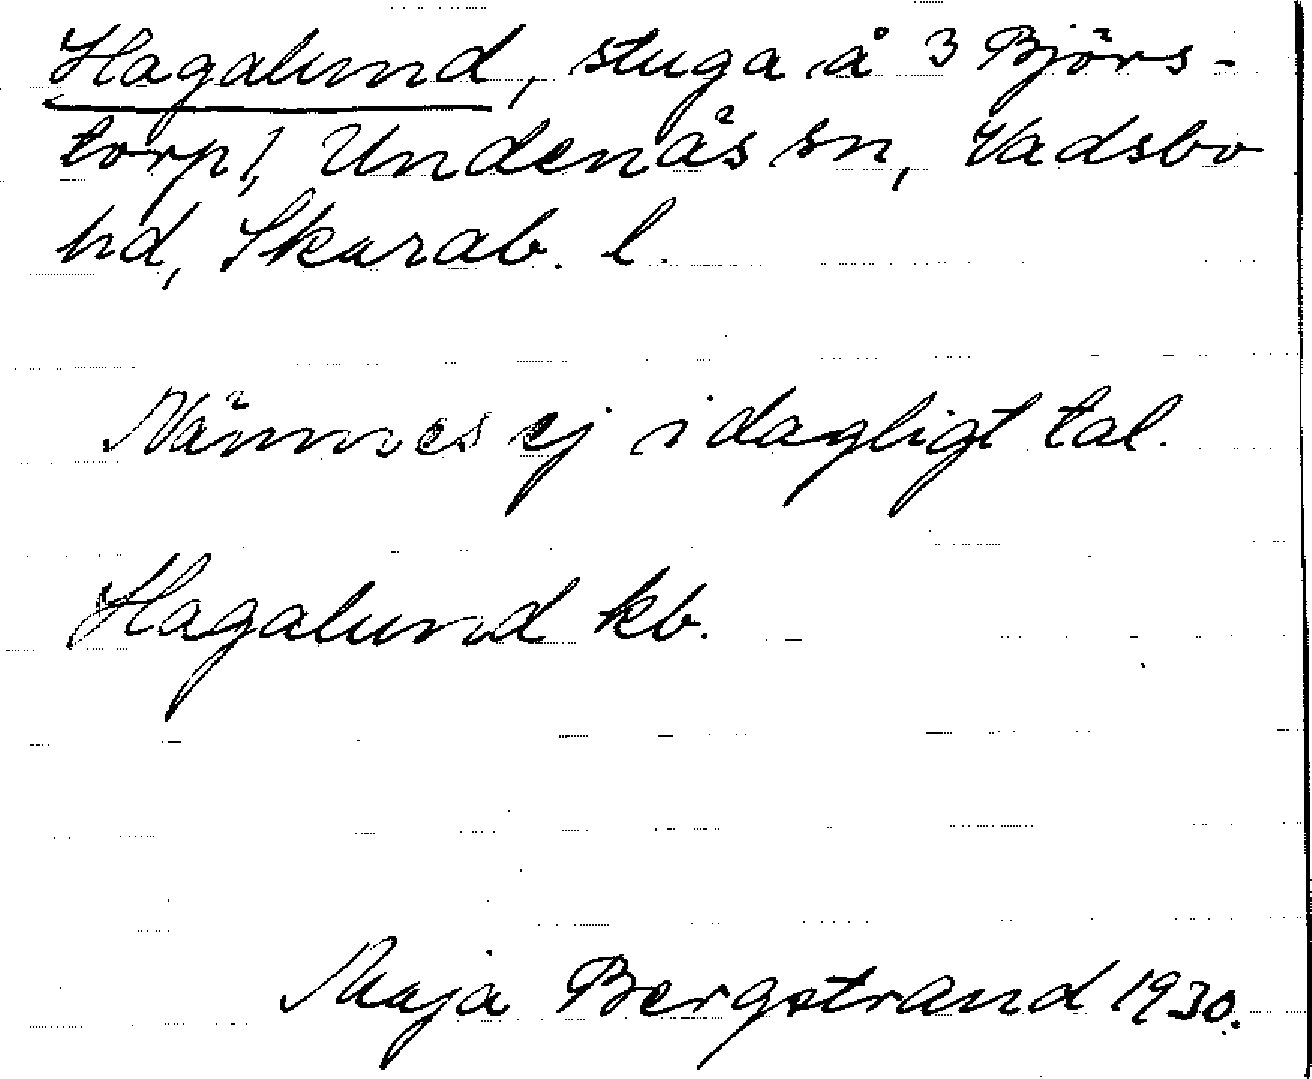 Hagalund, stuga å 3 Björs-
torp!, Undenäs sn, Vadsbo
hd, Skarab. l.
Nämnes ej i dagligt tal.
Hagalund kb.
Maja Bergstrand 1930.